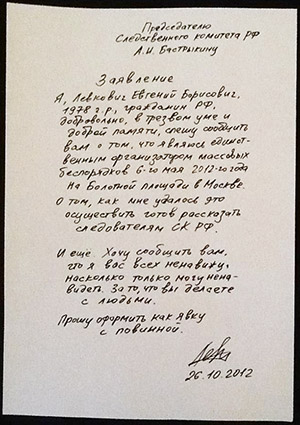 Председателю
Следственного комитета РФ
А.И. Бастрыкину
Заявление
Я, Левкович Евгений Борисович,
1978 г.р., гражданин РФ,
добровольно, в трезвом уме и
доброй памяти, спешу сообщить
вам о том, что являюсь единст-
венным организатором массовых
беспорядков 6-го мая 2012-го года
На Болотной площади в Москве.
О том, как мне удалось это
осуществить готов рассказать
следователям СК РФ.
И ещё. Хочу сообщить вам,
что я вас всех ненавижу,
насколько только могу нена-
видеть. За то, что вы делаете
с людьми.
Прошу оформить как явку
с повинной.
26.10.2012